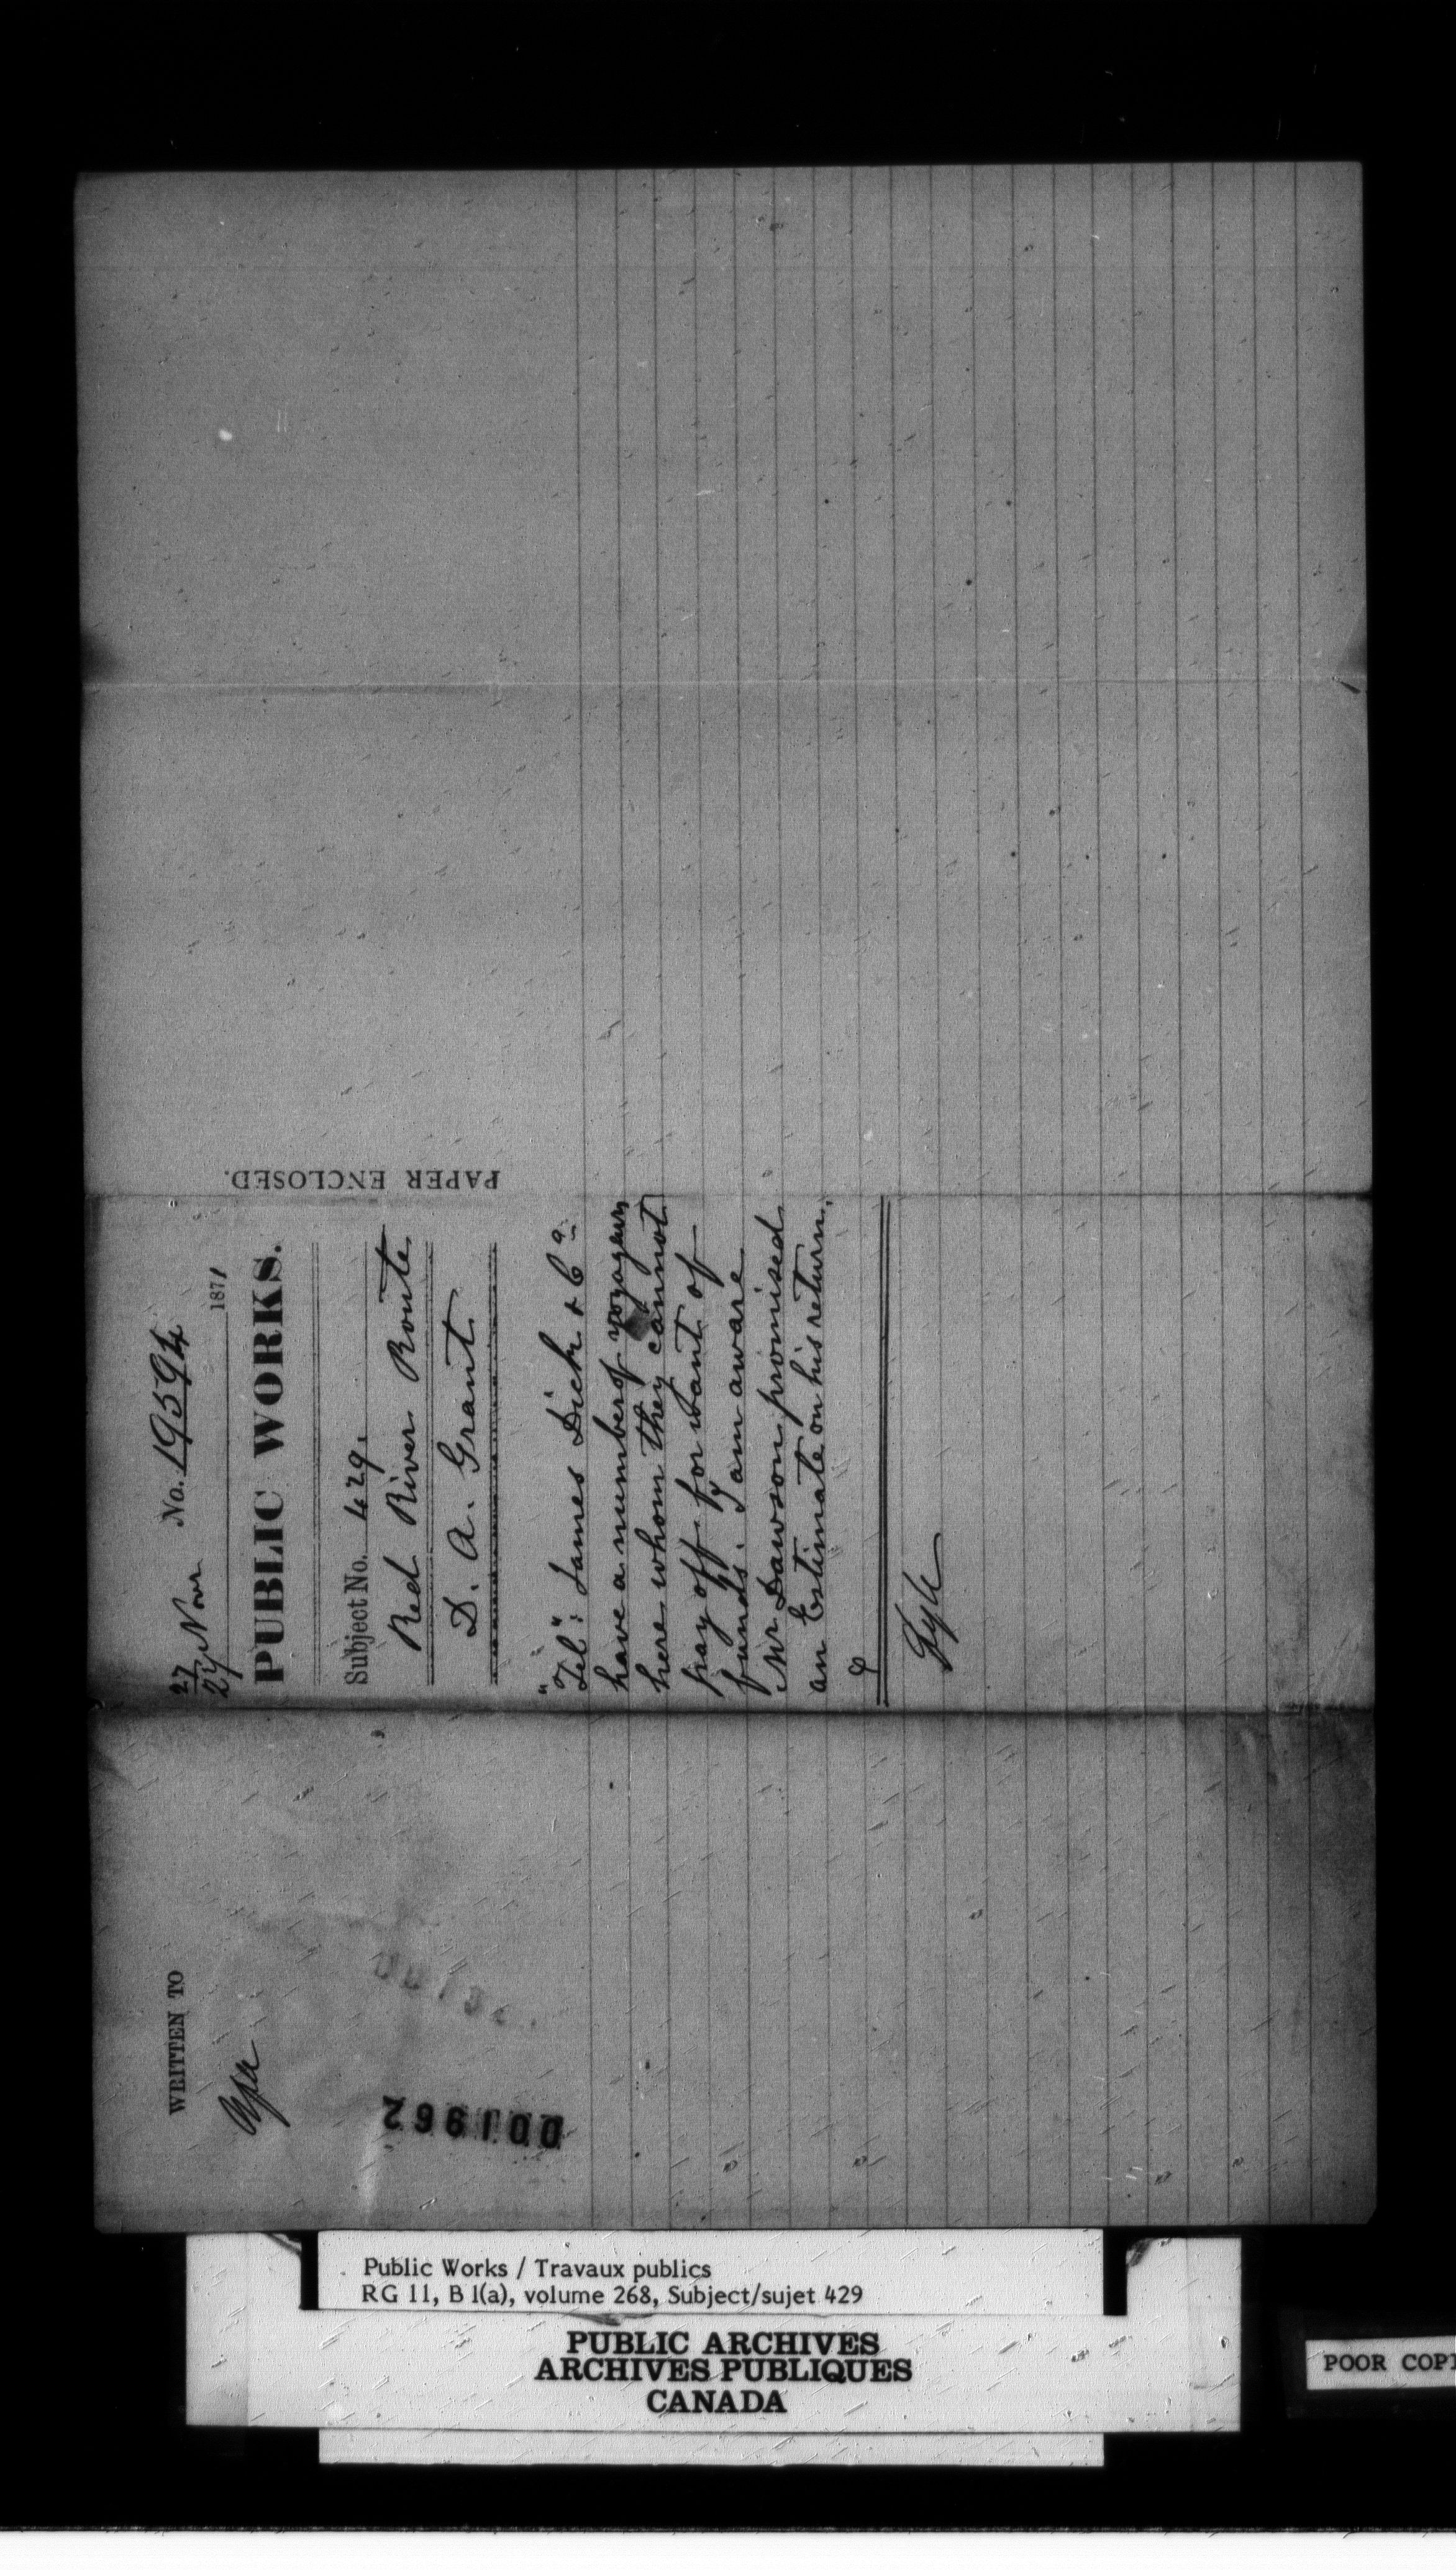 27 Nov No. 19594
27 1871
PUBLIC WORKS.
Subject No. 429.
Red River Route
D. A. Grant
"Tel": James Dick & Co.
have a number of voyageurs
here whom they cannot
pay off for want of
funds. I am aware
Mr Dawson promised
an Estimate on his return.
Fyle
PAPER ENCLOSED.
WRITTEN TO
001962
Public Works / Travaux publics
RG 11, B 1(a), volume 268, Subject/sujet 429
PUBLIC ARCHIVES
ARCHIVES PUBLIQUES
CANADA
POOR COPI